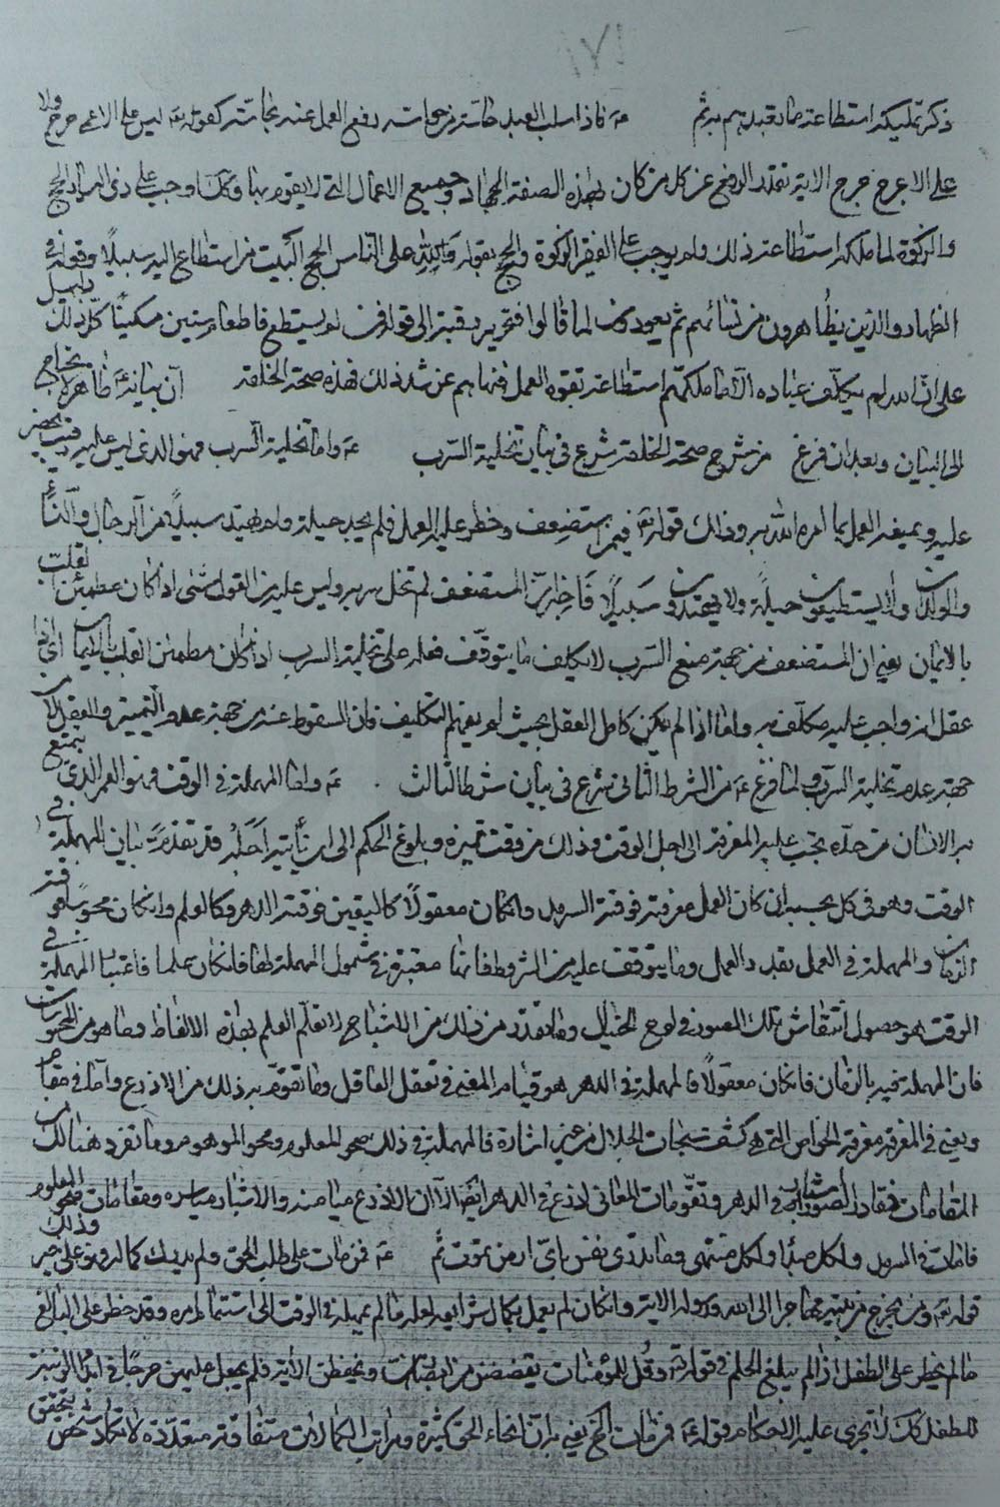 ١٧١
ذكرت تمليكه استطاعة ما تعبدهم به ثم عه فاذا سلب العبد حاسة من حواسه رفع العمل عنه بحاسته كقوله تع ليس على الاعمى حرج ولا
على الاعرج حرج الاية فقد رفع عن كل من كان بهذه الصفة الجهاد وجميع الاعمال التي لا يقوم بها وكذلك اوجب على ذي اليسار الحج
والزكوة لما ملكه استطاعة ذلك ولم يوجب على الفقير الزكوة والحج بقوله ولله على الناس حج البيت من استطاع اليه سبيلا وقوله في
الظهار والذين يظاهرون من نسائهم ثم يعودون لما قالوا فتحرير رقبة الى قوله فمن لم يستطع فاطعام ستين مسكينا كل ذلك دليل
على ان الله لم يكلف عباده الا ما ملكهم استطاعة بقوة العمل به ونهاهم عن مثل ذلك فهذه صحة الخلقة ان بيانه ظاهره لا يحتاج
الى البيان وبعد ان فرغ من شرح صحة الخلقة شرع في بيان تخلية السرب عه واما تخلية السرب فهو الذي ليس عليه رقيب يحضر
عليه ويمنعه العمل بما امره الله به وذلك قوله تع فيمن استضعف وحظر عليه العمل فلم يجد حيلة ولم يهتد سبيلا من الرجال والنساء
والولدان لا يستطيعون حيلة ولا يهتدون سبيلا فاخبر ان المستضعف لم تخل سربه وليس عليه من القول شئ اذا كان مطمئن القلب
بالايمان يعني ان المستضعف من جهة منع السرب لا يكلف ما يتوقف فعله على تخلية السرب اذا كان مطمئن القلب بالايمان اي
عقل انه واجب عليه مكلف به واما اذا لم يكن كامل العقل بحيث لم يفهم التكليف فان السقوط عنه من جهة عدم التمييز والعقل لا من
جهة عدم تخلية السرب ولما فرغ عه من الشرط الثاني شرع في بيان شرط الثالث عه واما المهلة في الوقت فهو العمر الذي يمتع
به الانسان من حد ما يجب عليه المعرفة الى اجل الوقت وذلك من وقت تميزه وبلوغ الحكم الى ان يأتيه اجله قد تقدم بيان المهلة في
الوقت وهو في كل بحسبه ان كان العمل معرفة فوقته السرمد وان كان معقولا كاليقين فوقته الدهر وكالعلم وان كان محسوسا فوقته
الزمان والمهلة في العمل بقدر العمل وما يتوقف عليه من الشروط فانها معتبرة في شمول المهلة لها فان كان علما فاعتبار المهلة في
الوقت هو حصول انتقاش تلك الصور في لوح الخيال وما تقدر من ذلك من الاشباح لا تعلم العلم بهذه الالفاظ وما هو من المحسوسات
فان المهلة فيه بالزمان فان كان معقولا فالمهلة في الدهر هو قيام المعنى في تعقل العاقل وما تقوم به ذلك من الاذرع واما في مقام
ويعني في المعرفة معرفة الخواص التي هي كشف سبحات الجلال من غير اشارة فالمهلة في ذلك صحو المعلوم ومحو الموهوم وما تفرد هنالك من
المقامات فمقادير الصور في الدهر وتقومات المعاني اذرع في الدهر ايضا الا ان الاذرع ميامنه والاشبار مياسره ومقامات صحو المعلوم
قامات في السرمد ولكل مبدا ولكل منتهى وما تدري نفس باي ارض تموت ثم عه فمن مات على طلب الحق ولم يدرك كماله فهو على خير وذلك
قوله تع ومن يخرج من بيته مهاجرا الى الله ورسوله الاية وان كان لم يعمل بكمال شرايعه لعلة ما لم يمهله في الوقت الى استتمام امره وقد حظر على البالغ
ما لم يحظر على الطفل اذا لم يبلغ الحلم في قوله تع وقل للمؤمنات يغضضن من ابصارهن ويحفظن الاية فلم يجعل عليهن حرجا في ابداء الزينة
للطفل كذلك لا تجري عليه الاحكام قوله عه فمن مات الخ يعني به ان انحاء الحق كثيرة ومراتب الكمالات متفاوتة متعددة لا تكاد تتحقق في شخص